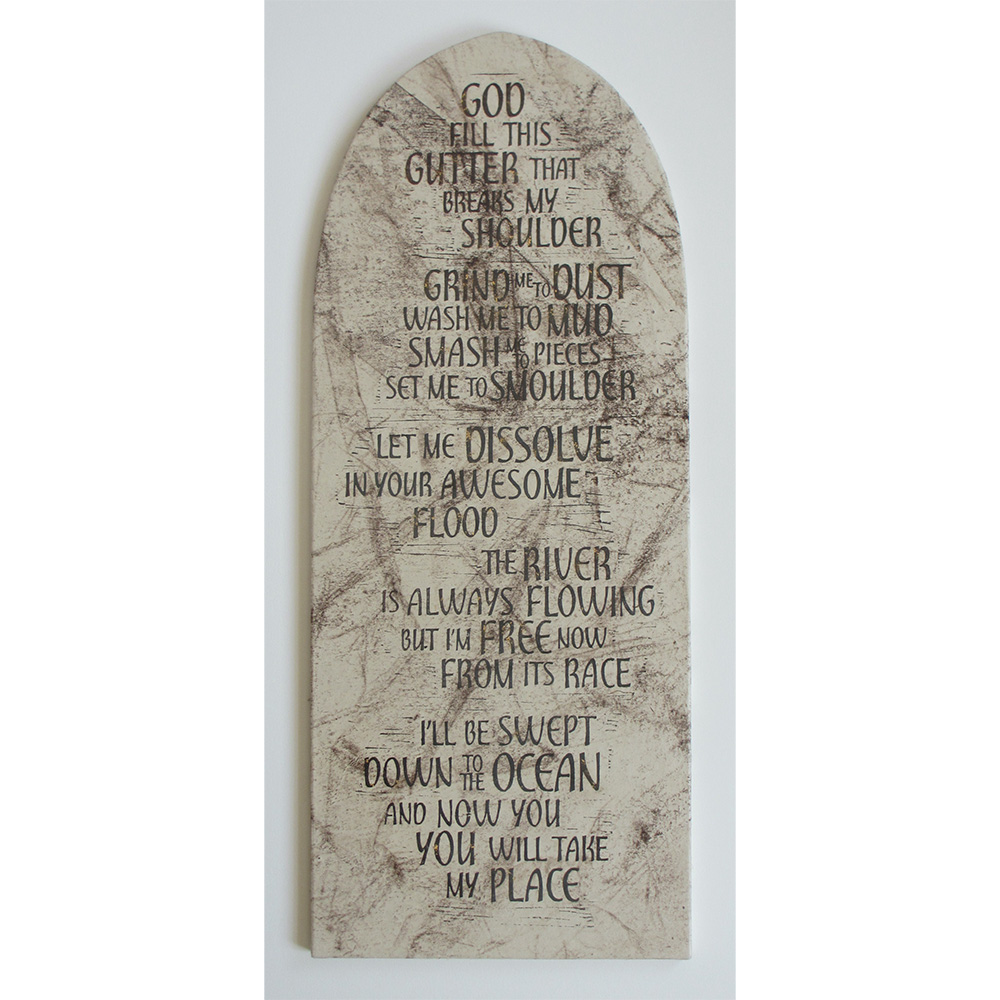 GOD
FILL THIS
GUTTER THAT
BREAKS MY
SHOULDER
GRIND ME TO DUST
WASH ME TO MUD
SMASH ME TO PIECES
SET ME TO SMOULDER
LET ME DISSOLVE
IN YOUR AWESOME
FLOOD
THE RIVER
IS ALWAYS FLOWING
BUT I'M FREE NOW
FROM ITS RACE
I'LL BE SWEPT
DOWN TO THE OCEAN
AND NOW YOU
YOU WILL TAKE
MY PLACE